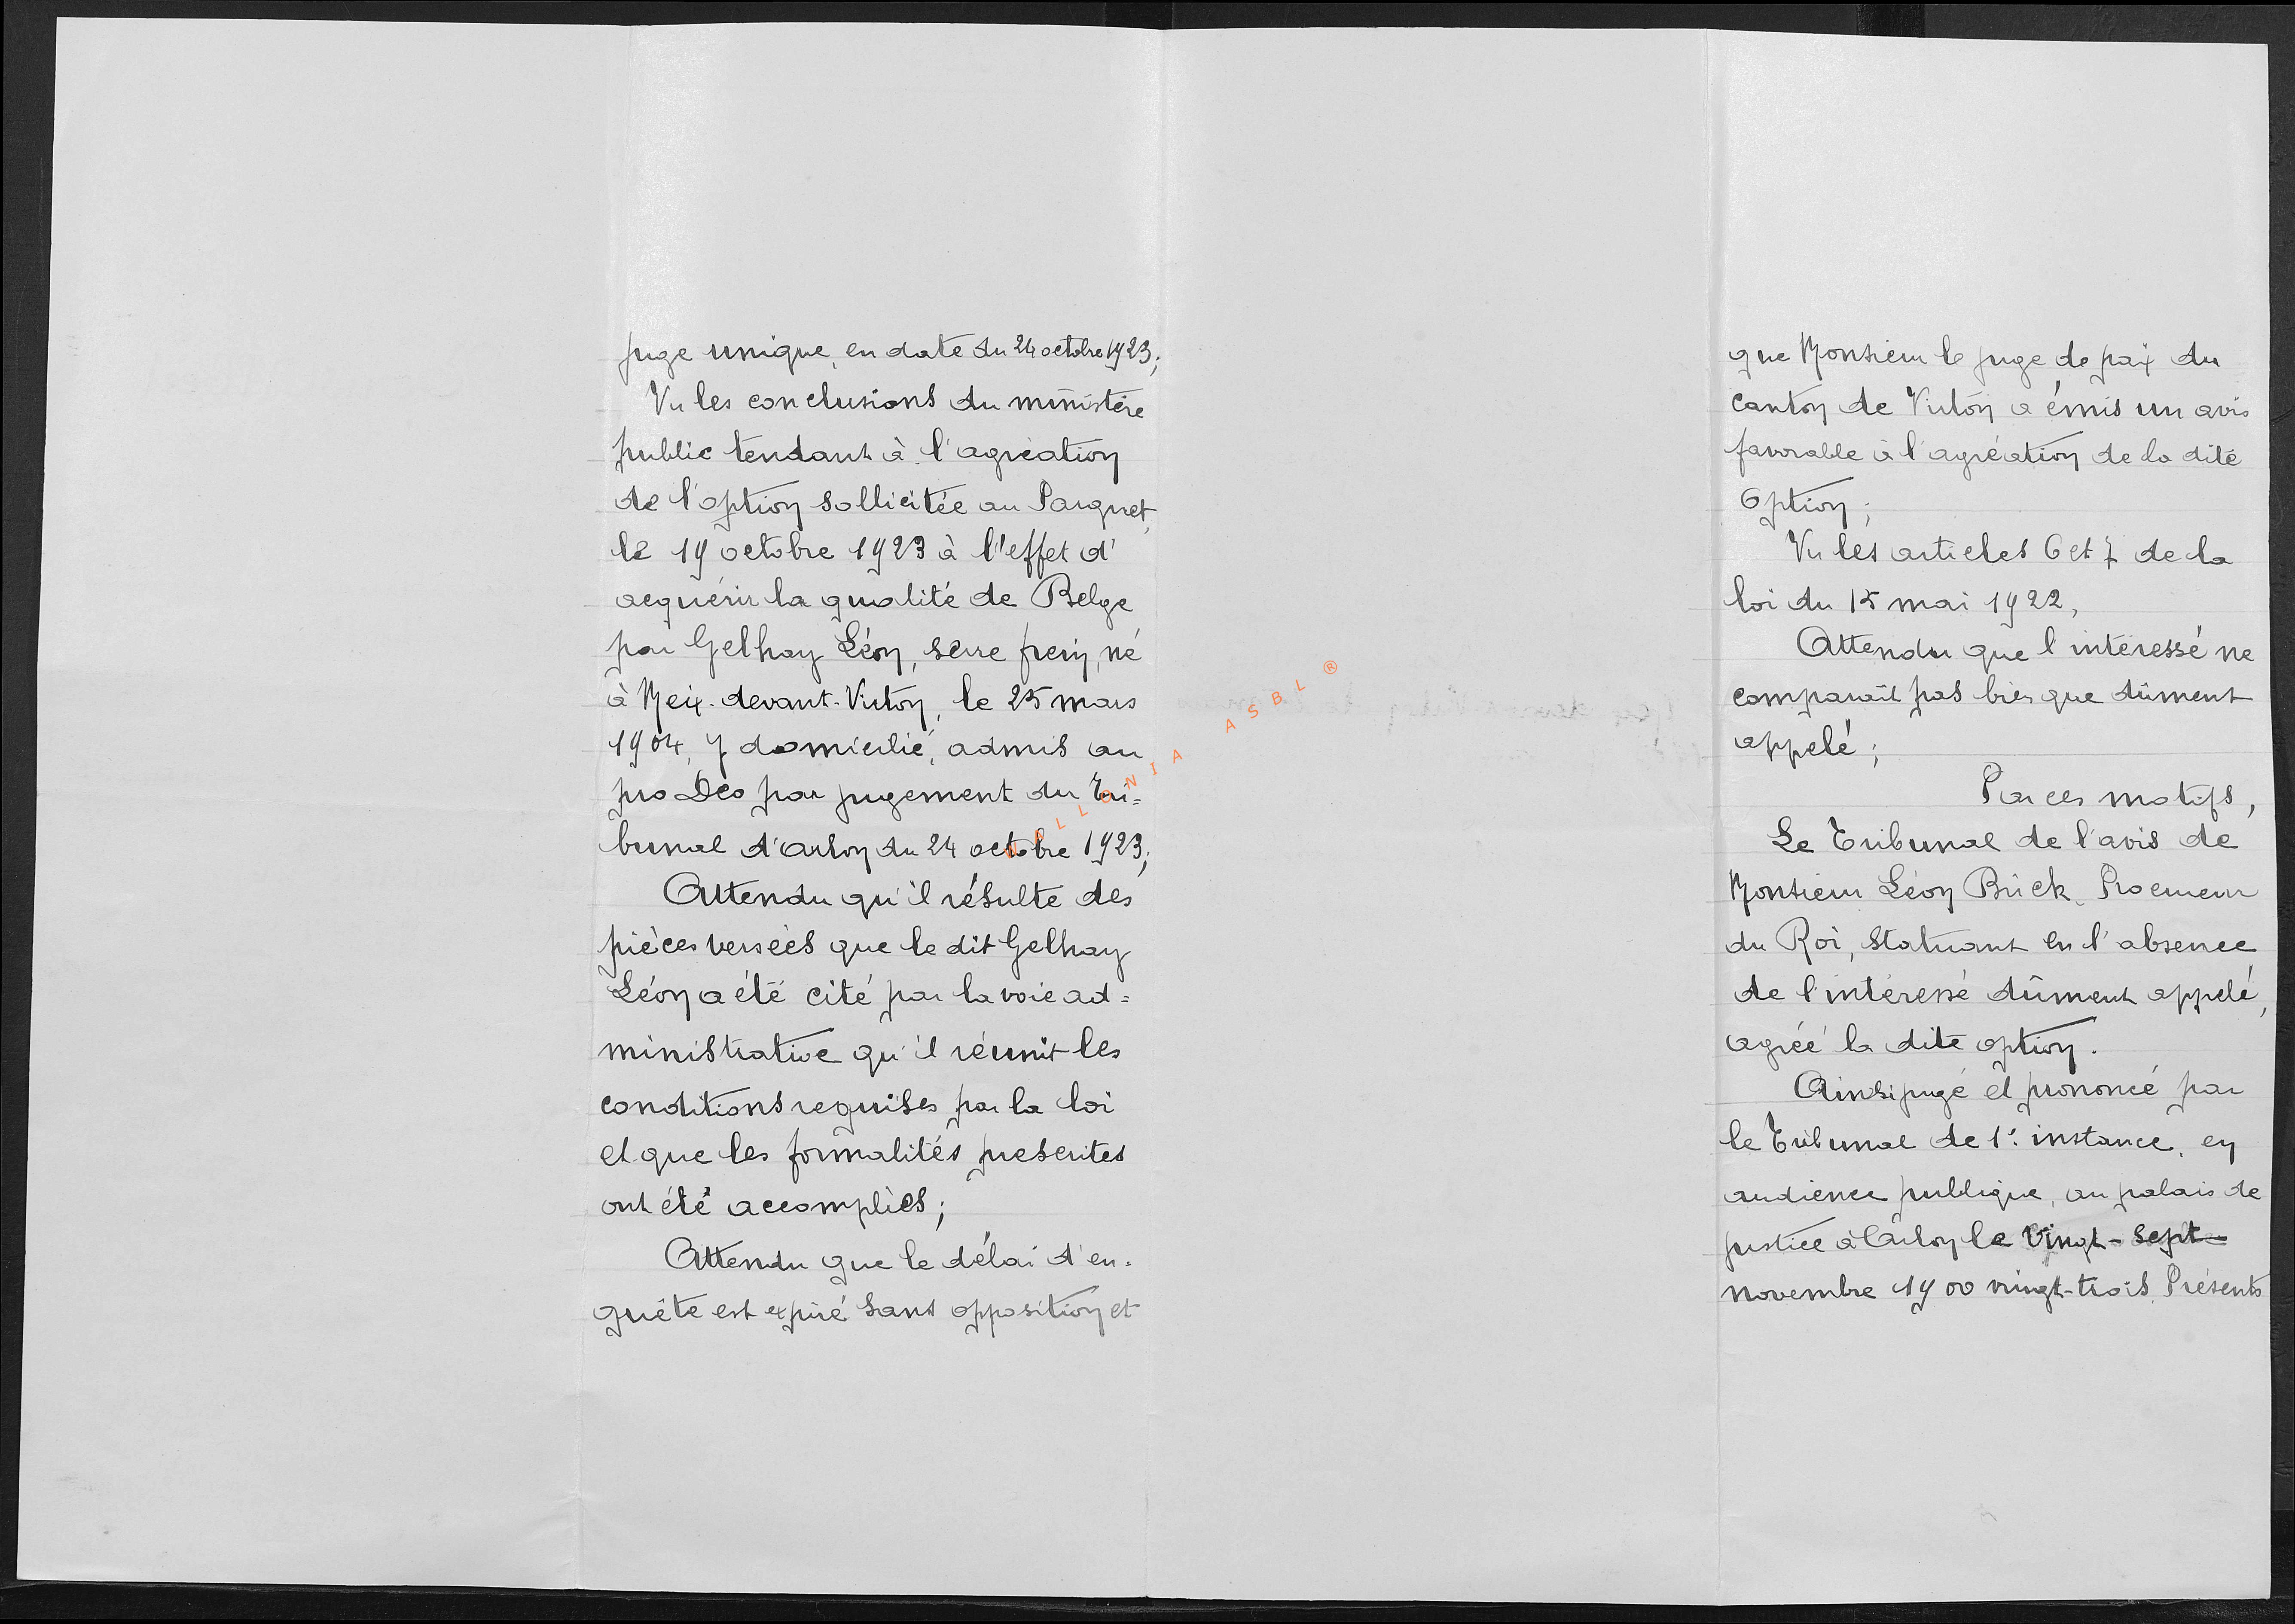 juge unique, en date du 24 octobre 1923;
Vu les conclusions du ministère
public tendant à l'agréation
de l'option sollicitée au Parquet,
le 19 octobre 1923 à l'effet d'
acquérir la qualité de Belge
par Gelhay Léon, serre frein, né
à Meix-devant-Virton, le 25 mars
1904, y domicilié, admis au
pro Deo par jugement du Tri=
bunal d'Arlon du 24 octobre 1923;
Attendu qu'il résulte des
pièces versées que le dit Gelhay
Léon a été cité par la voie ad=
ministrative qu'il réunit les
conditions requises par la loi
et que les formalités prescrites
ont été accomplies;
Attendu que le délai d'en-
quête est expiré sans opposition et
que Monsieur le juge de paix du
canton de Virton a émis un avis
favorable à l'agréation de la dite
option;
Vu les articles 6 et 7 de la
loi du 15 mai 1922,
Attendu que l'intéressé ne
comparait pas bien que dûment
appelé;
Par ces motifs,
Le Tribunal de l'avis de
Monsieur Léon Brück, Procureur
du Roi, statuant en l'absence
de l'intéressé dûment appelé,
agréé la dite option.
Ainsi jugé et prononcé par
le Tribunal de 1e. instance, en
audience publique, au palais de
justice à Arlon le vingt-sept
novembre 1900 vingt-trois. Présents
WALLONIA ASBL ®